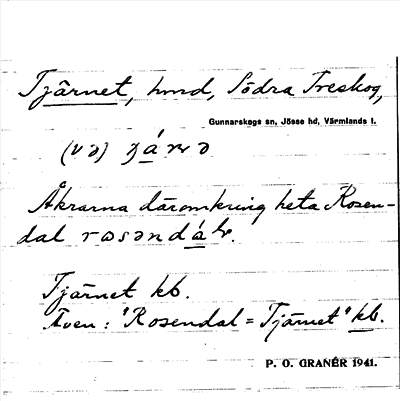 Tjärnet, hmd, Södra Treskog,
Gunnarskogs sn, Jösse hd, Värmlands l.
Åkrarna däromkring heta Rosen-
dal
Tjärnet kb.
Även: "Rosendal = Tjärnet" kb.
P. O. GRANÉR 1941.